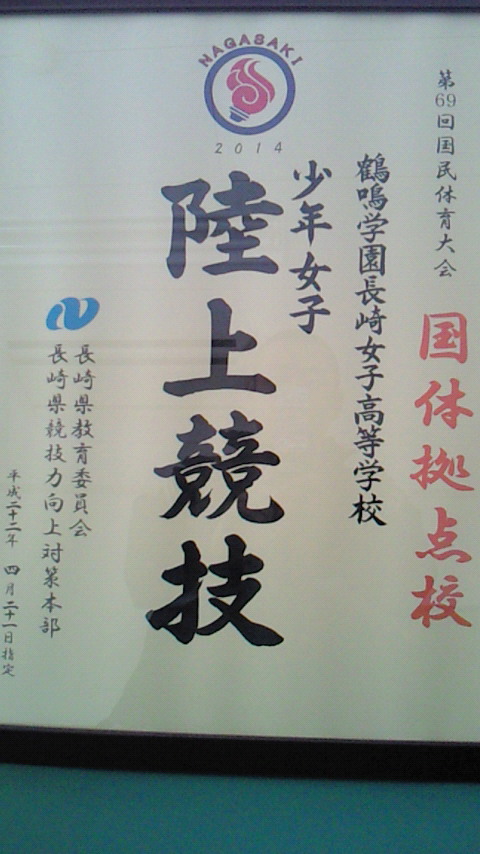 NAGASAKI
2014
第69回国民体育大会
国体拠点校
鶴鳴学園長崎女子高等学校
少年女子
陸上競技
長崎県教育委員会
長崎県競技力向上対策本部
平成二十二年 四月二十一日指定